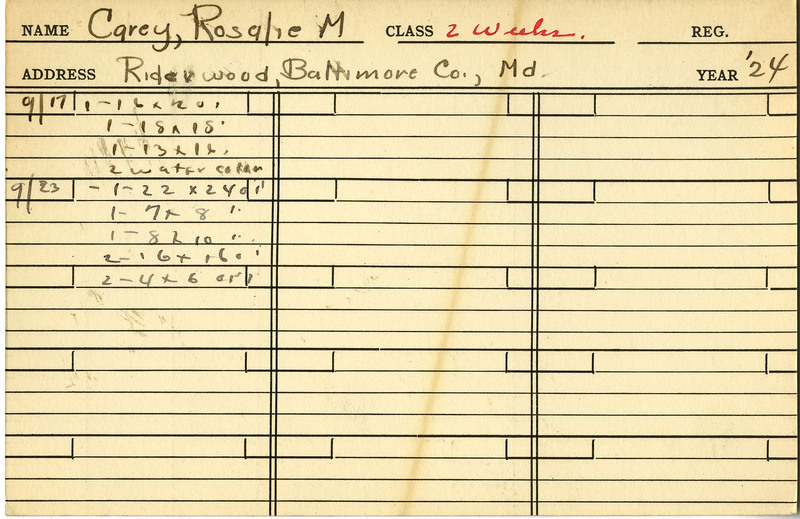 NAME Carey, Rosalie M CLASS 2 Weeks. REG.
ADDRESS Riderwood, Baltimore Co., Md. YEAR '24
9/17 1-16 x 20"
1-18 x 15"
1-13 x 12
2 water color
9/23 - 1-22 x 24 oil
1-7 x 8 "
1-8 x 10 "
2-16 x 16 oil
2-4 x 6 oil